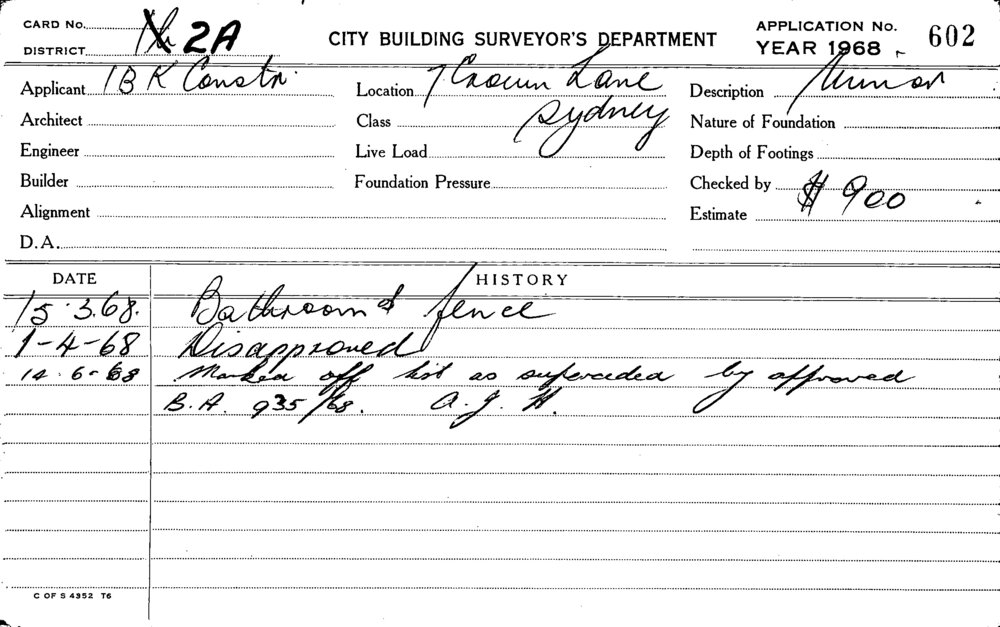 CARD No. 2A
DISTRICT
CITY BUILDING SURVEYOR'S DEPARTMENT
APPLICATION No. 602
YEAR 1968
Applicant I B K Constr.
Location 7 Crown Lane
Sydney
Description Minor
Architect
Class
Nature of Foundation
Engineer
Live Load
Depth of Footings
Builder
Foundation Pressure
Checked by
Alignment
Estimate $ 900
D.A.
DATE HISTORY
15.3.68. Bathroom & fence
1-4-68 Disapproved
14.6-68 Marked off list as superceded by approved
B.A. 935/68. A.J.H.
C OF S 4352 T6